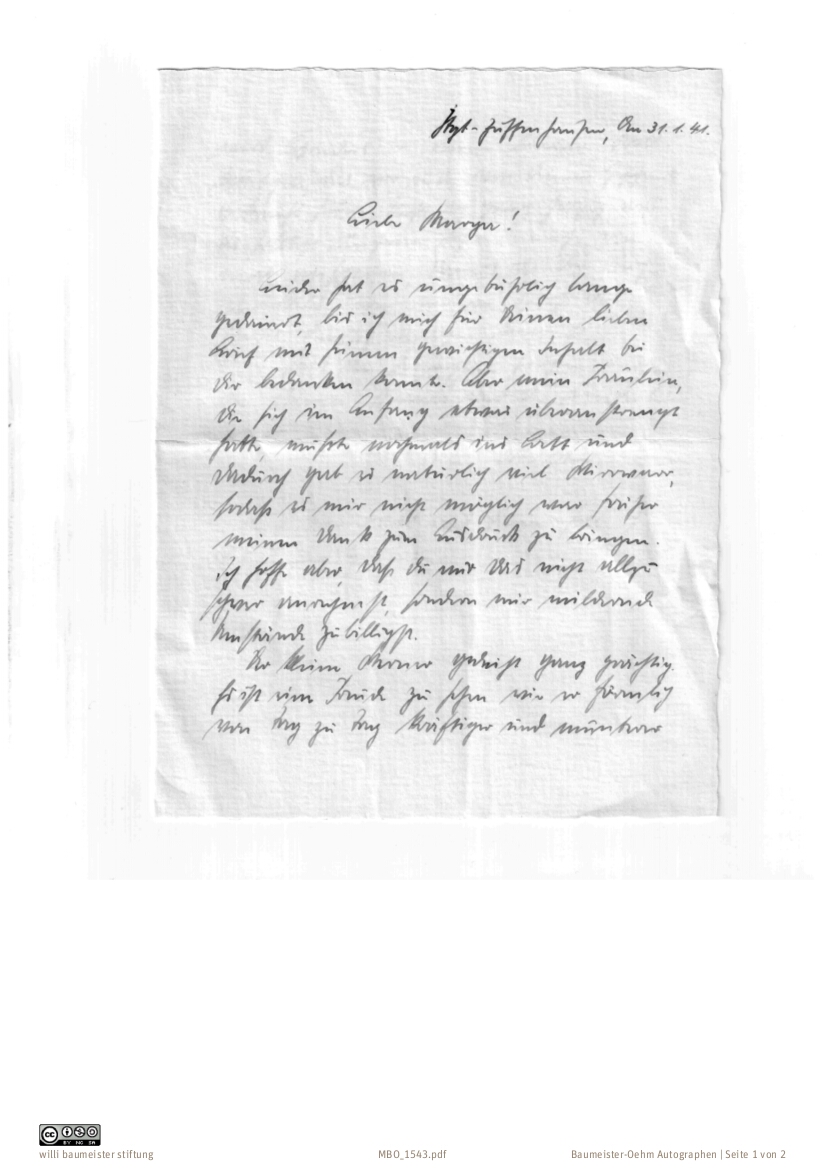 Stgt-Zuffenhausen, Am 31.1.41.
Liebe Marga!
Leider hat es ungebührlich lange
gedauert, bis ich mich für Deinen lieben
Brief mit seinem gewichtigen Inhalt bei
Dir bedanken konnte. Aber mein Fräulein,
die sich im Anfang etwas überanstrengt
hatte, musste nochmals ins Bett und
dadurch gab es natürlich viel Wirrwarr,
sodass es mir nicht möglich war früher
meinen Dank zum Ausdruck zu bringen.
Ich hoffe aber, dass Du mir das nicht allzu
schwer anrechnest, sondern mir mildernde
Umstände zubilligst.
Der kleine Werner gedeiht ganz prächtig.
Es ist eine Freude zu sehen wie er förmlich
von Tag zu Tag kräftiger und munterer
CC BY NC SA
willi baumeister stiftung
MBO_1543.pdf
Baumeister-Oehm Autographen | Seite 1 von 2